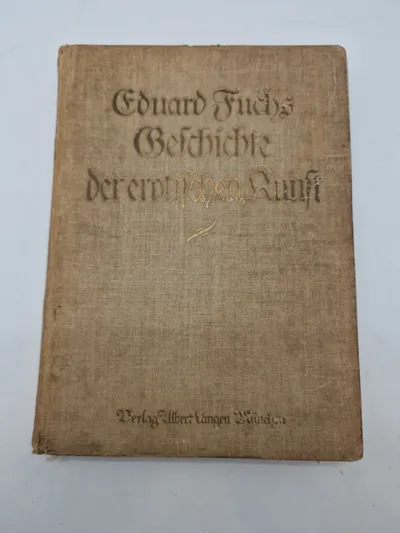 Eduard Fuchs
Geschichte
der erotischen Kunst
Verlag Albert Langen München